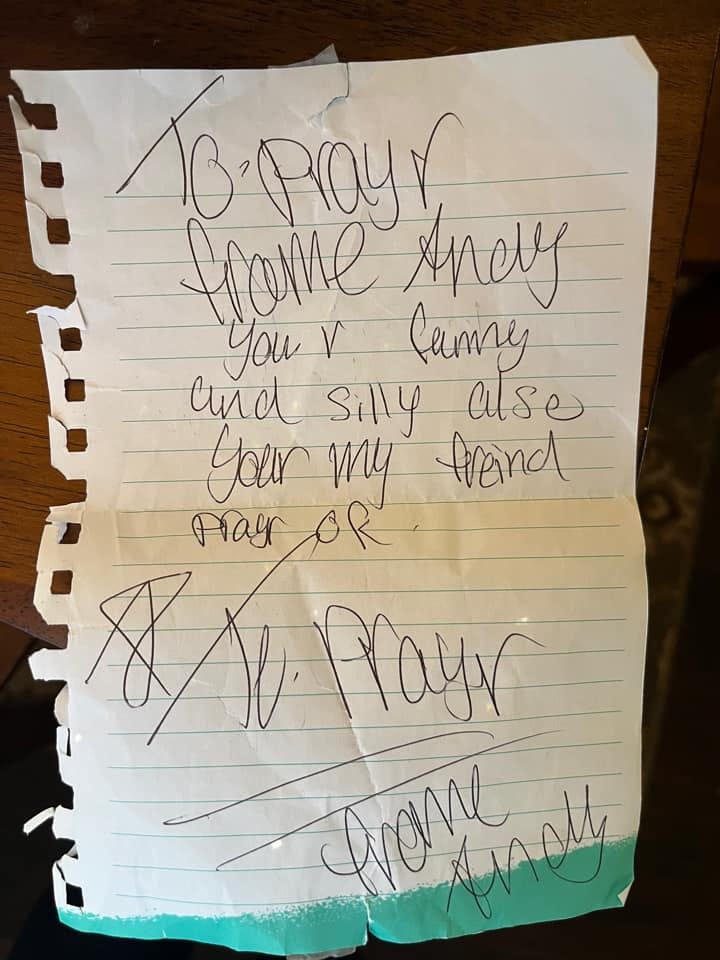 To: Prayr
frome Andy
you r funny
and silly also
your my freind
Prayr OK.
To. Prayr
frome
Andy